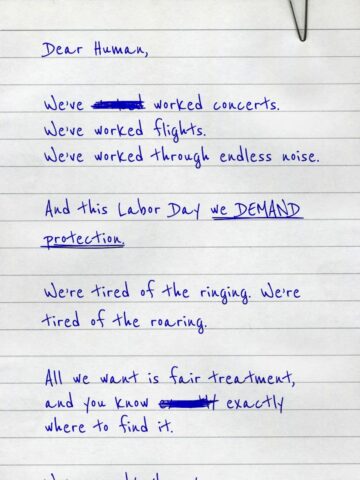 Dear Human,
We've worked concerts.
We've worked flights.
We've worked through endless noise.
And this Labor Day we DEMAND
protection.
We're tired of the ringing. We're
tired of the roaring.
All we want is fair treatment,
and you know exactly
where to find it.